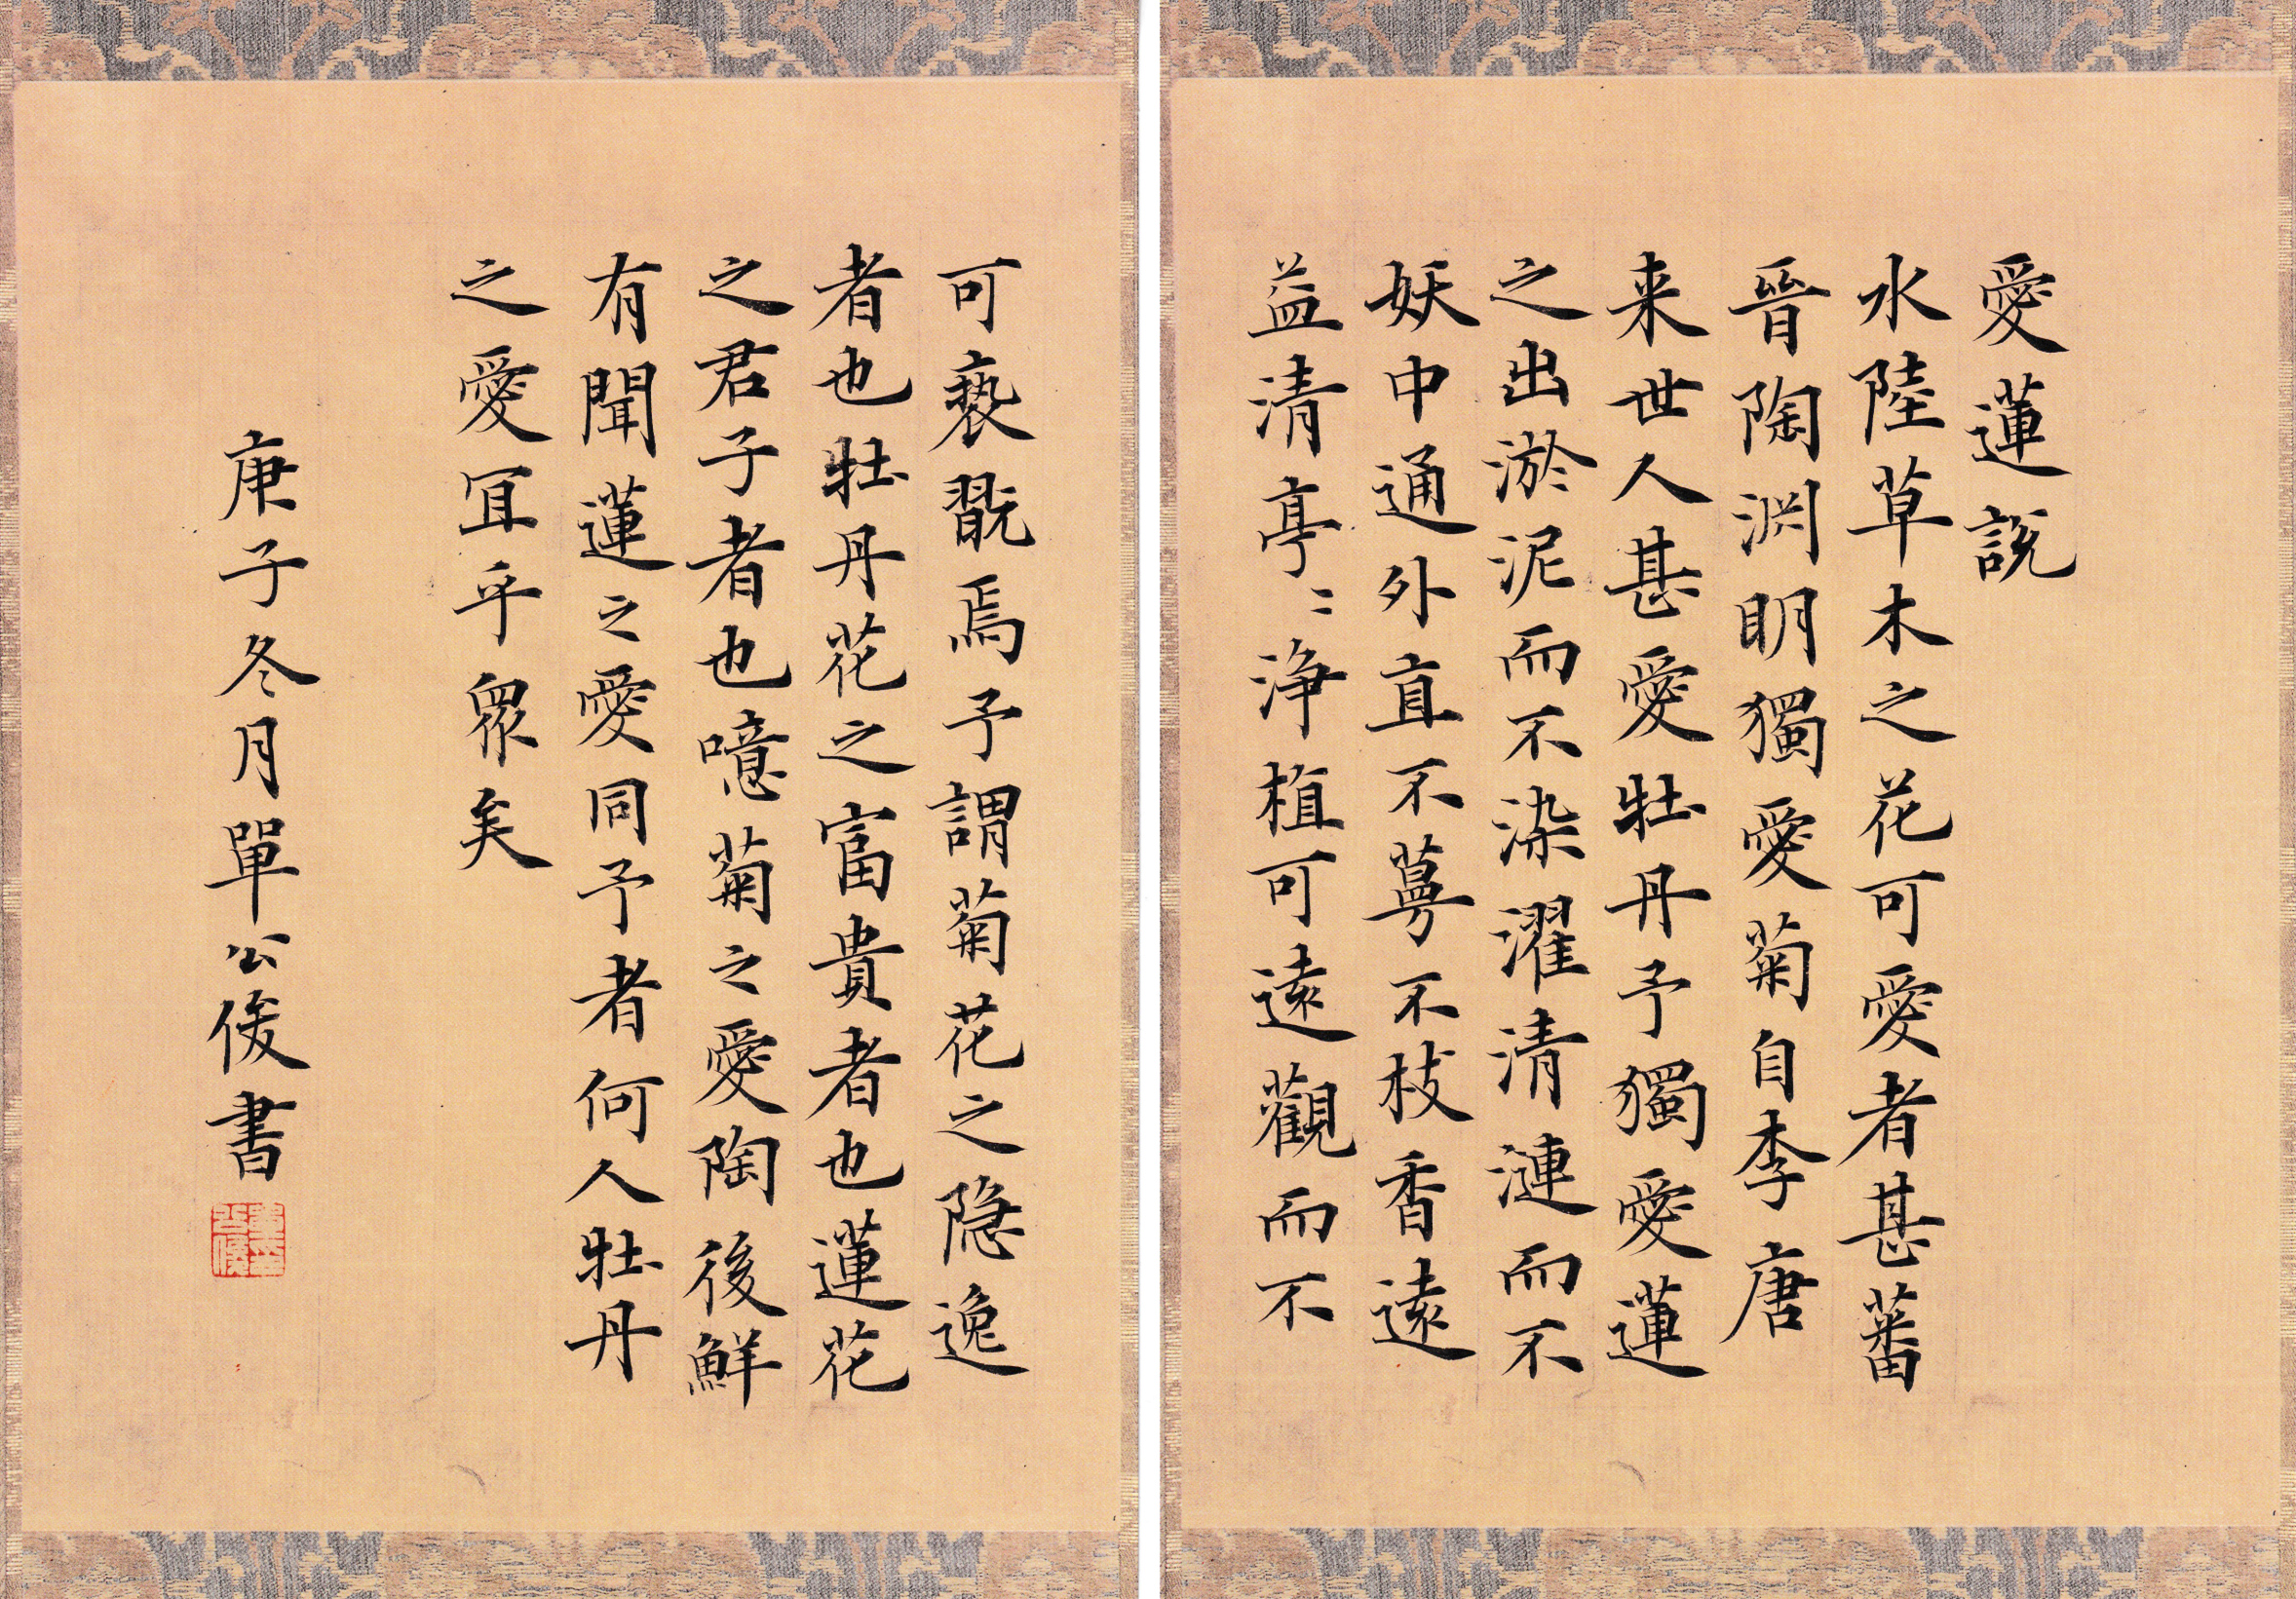 愛蓮説
水陸草木之花可愛者甚蕃
晉陶渊明獨愛菊自李唐
来世人甚愛牡丹予獨愛蓮
之出淤泥而不染濯清漣而不
妖中通外直不蔓不枝香遠
益清亭〻浄植可遠觀而不
可褻翫焉予謂菊花之隐逸
者也牡丹花之富貴者也蓮花
之君子者也噫菊之愛陶後鮮
有聞蓮之愛同予者何人牡丹
之愛冝乎眾矣
庚子冬月單公俊書